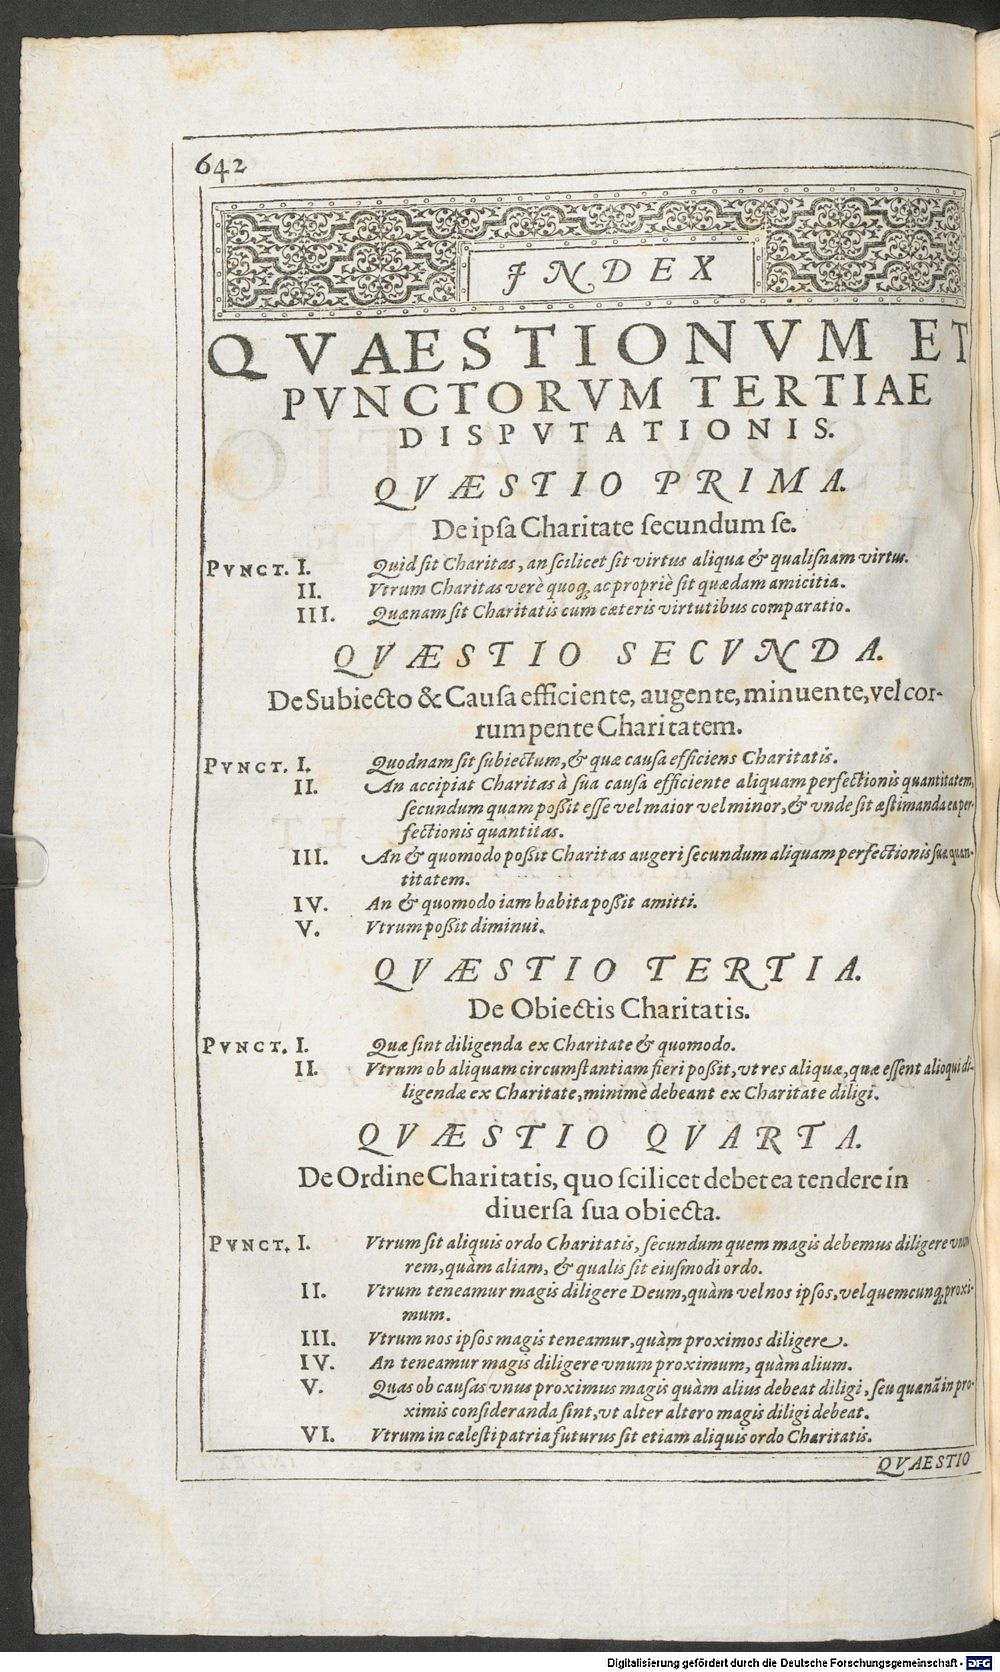 642
INDEX
QVAESTIONVM ET
PVNCTORVM TERTIAE
DISPVTATIONIS.
QVÆSTIO PRIMA.
De ipſa Charitate ſecundum ſe.
PVNCT. I. Quid ſit Charitas, an ſcilicet ſit virtus aliqua & qualiſnam virtus.
II. Vtrum Charitas verè quoq; ac propriè ſit quædam amicitia.
III. Quænam ſit Charitatis cum cæteris virtutibus comparatio.
QVÆSTIO SECVNDA.
De Subiecto & Cauſa efficiente, augente, minuente, vel cor-
rumpente Charitatem.
PVNCT. I. Quodnam ſit ſubiectum, & quæ cauſa efficiens Charitatis.
II. An accipiat Charitas à ſua cauſa efficiente aliquam perfectionis quantitatem,
ſecundum quam poßit eſſe vel maior vel minor, & vnde ſit æstimanda ea per-
fectionis quantitas.
III. An & quomodo poßit Charitas augeri ſecundum aliquam perfectionis ſuæ quan-
titatem.
IV. An & quomodo iam habita poßit amitti.
V. Vtrum poßit diminui.
QVÆSTIO TERTIA.
De Obiectis Charitatis.
PVNCT. I. Quæ ſint diligenda ex Charitate & quomodo.
II. Vtrum ob aliquam circumſtantiam fieri poßit, vt res aliquæ, quæ eſſent alioqui di-
ligendæ ex Charitate, minimè debeant ex Charitate diligi.
QVÆSTIO QVARTA.
De Ordine Charitatis, quo ſcilicet debet ea tendere in
diuerſa ſua obiecta.
PVNCT. I. Vtrum ſit aliquis ordo Charitatis, ſecundum quem magis debemus diligere vnam
rem, quàm aliam, & qualis ſit eiuſmodi ordo.
II. Vtrum teneamur magis diligere Deum, quàm vel nos ipſos, vel quemcunq; proxi-
mum.
III. Vtrum nos ipſos magis teneamur, quàm proximos diligere.
IV. An teneamur magis diligere vnum proximum, quàm alium.
V. Quas ob cauſas vnus proximus magis quàm alius debeat diligi, ſeu quænã in pro-
ximis conſideranda ſint, vt alter altero magis diligi debeat.
VI. Vtrum in cæleſti patria futurus ſit etiam aliquis ordo Charitatis.
QVAESTIO
Digitalisierung gefördert durch die Deutsche Forschungsgemeinschaft - DFG